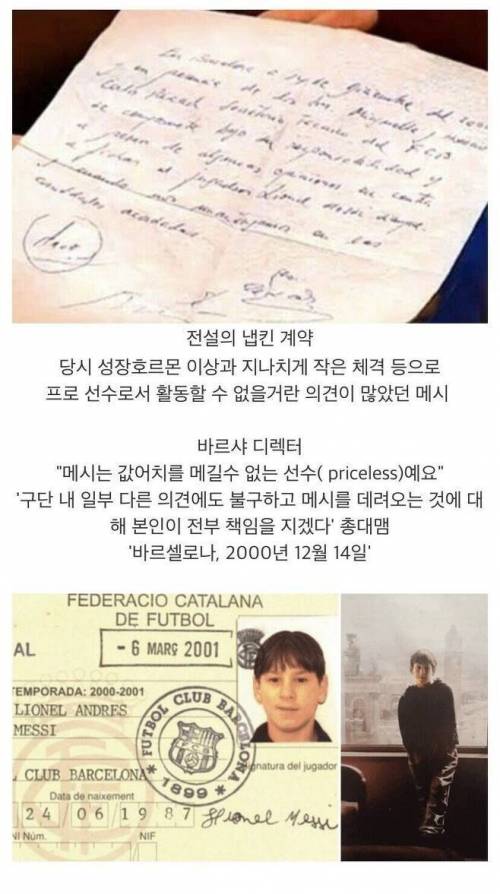 En Barcelona a 14 de Diciembre del 2000
y en presencia de los Srs Minguella y Horacio
Carlos Rexach Secretario Técnico del F.C.B
se compromete bajo su responsabilidad y
a pesar de algunas opiniones en contra
a fichar al jugador Lionel Messi
y cuando nos mantengamos en las
cantidades acordadas
전설의 냅킨 계약
당시 성장호르몬 이상과 지나치게 작은 체격 등으로
프로 선수로서 활동할 수 없을거란 의견이 많았던 메시
바르샤 디렉터
"메시는 값어치를 메길수 없는 선수( priceless)예요"
'구단 내 일부 다른 의견에도 불구하고 메시를 데려오는 것에 대
해 본인이 전부 책임을 지겠다' 총대맴
'바르셀로나, 2000년 12월 14일'
FEDERACIO CATALANA
DE FUTBOL
AL
- 6 MARÇ 2001
TEMPORADA: 2000-2001
LIONEL ANDRES
MESSI
FUTBOL CLUB BARCELONA
1899
L CLUB BARCELONA
gnatura del jugador
Data de naixement
24 06 1987
Lionel Messi
NI Núm.
NIF